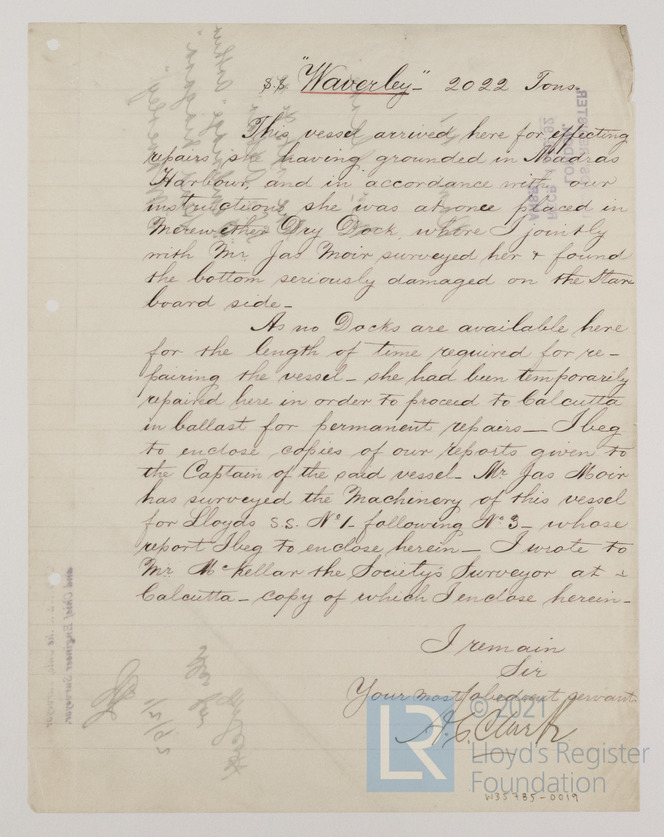 S.S "Waverley" - 2022 Tons.
This vessel arrived here for effecting
repairs she having grounded in Madras
Harbour, and in accordance with our
instructions she was at once placed in
Merewether Dry Dock, where I jointly
with Mr. Jas Moir surveyed her & found
the bottom seriously damaged on the Star=
board side -
As no Docks are available here
for the length of time required for re-
pairing the vessel - she had been temporarily
repaired here in order to proceed to Calcutta
in ballast for permanent repairs - I beg
to enclose copies of our reports given to
the Captain of the said vessel - Mr Jas Moir
has surveyed the Machinery of this vessel
for Lloyds S.S. No 1 - following No 3 - whose
report I beg to enclose herein - I wrote to
Mr. McKellar the Society's Surveyor at
Calcutta - copy of which I enclose herein -
I remain
Sir
Your most obedient servant
A. C. Clark
© 2021
LR
Lloyd's Register
Foundation
W35785-0019